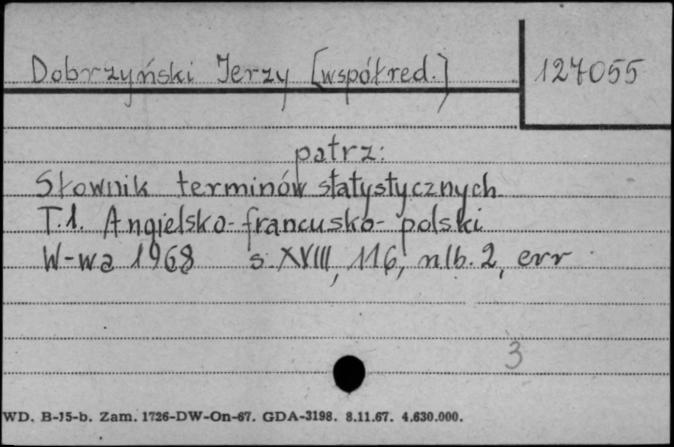 Dobrzyński Jerzy [współred.] 127055
patrz:
Słownik terminów statystycznych
T.1. Angielsko-francusko-polski
W-wa 1968 s. XVIII, 116, nlb. 2, err
3
WD. B-15-b. Zam. 1726-DW-On-67. GDA-3198. 8.11.67. 4.630.000.